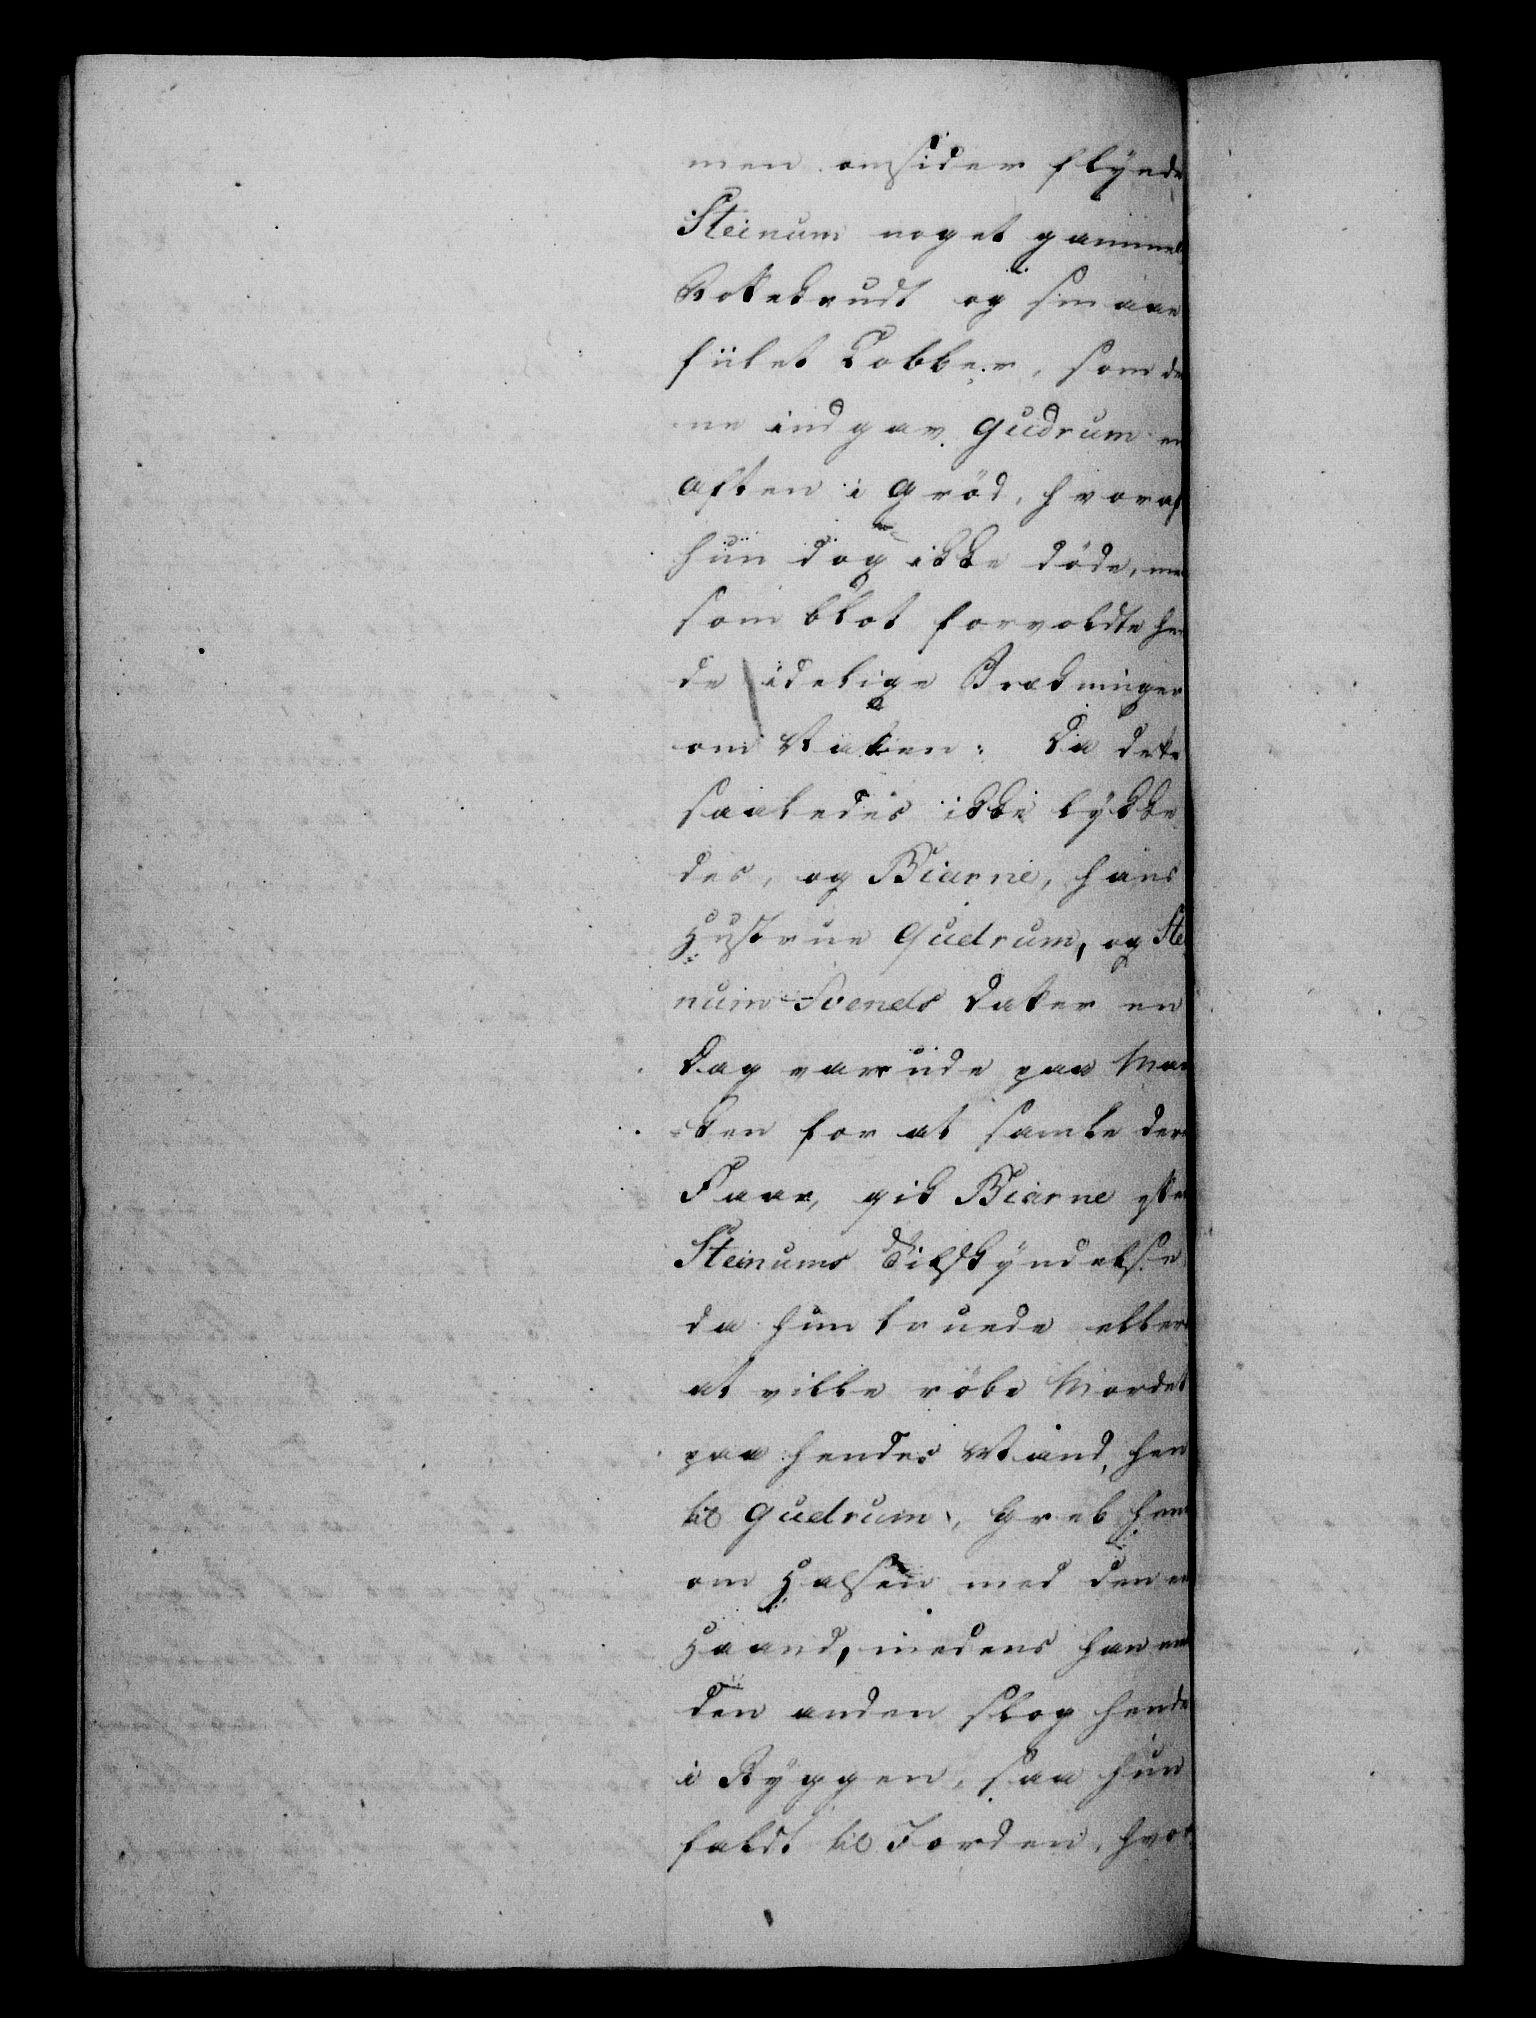 men omsider flyede
Steinum noget gammel
Rottekrudt og smaae
fiilet Kobber, som de
ne indgav Gudrum en
Aften i Grød, hvoraf
hun dog ikke døde, me
som blot forvoldte he
de idelige Brækninger
om Natten: Da dette
saaledes ikke lykke
des, og Biarne, hans
Hustrue Gudrum, og Ste
num Svends Datter en
Dag var ude paa Ma
ken for at samle der
Faar, gik Biarne efter
Steinums Tilskyndelse
da hun truede ellers
at ville røbe Mordet
paa hendes Mand, hen
til Gudrum, Greb hen
om Halsen med den en
Haand, medens han me
den anden slog hende
i Ryggen, saa hun
faldt til Jorden, hvor